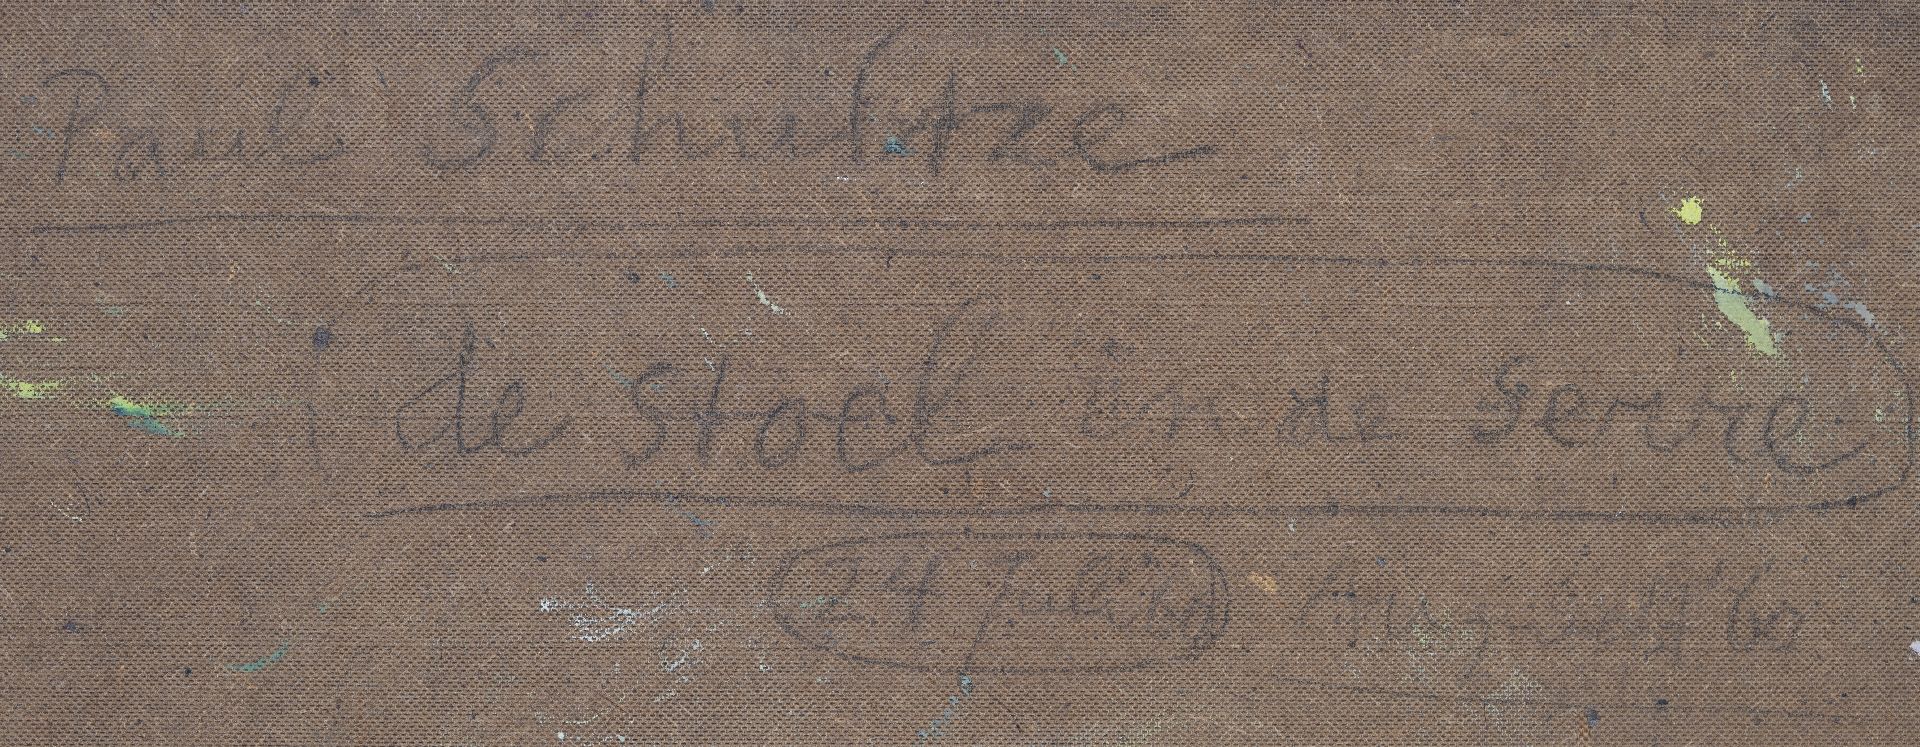 Paul Schultze
de Stock in de Serre
24 juli '60 August '60